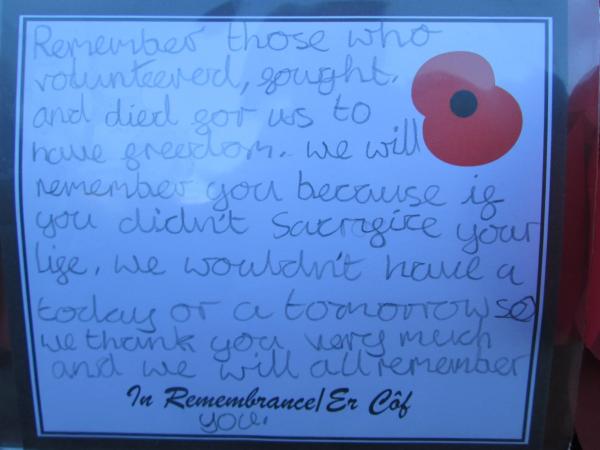 Remember those who
volunteered, fought,
and died for us to
have freedom. We will
remember you because if
you didn't sacrifice your
life, we wouldn't have a
today or a tomorrow so
we thank you very much
and we will all remember
In Remembrance/Er Côf
you.